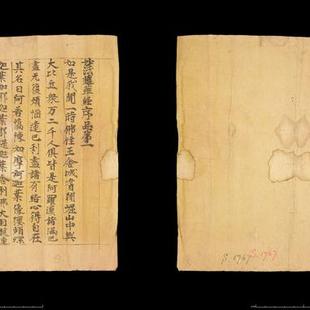 妙法蓮華經序品第一
如是我聞一時佛住王舍城耆闍崛山中與
大比丘衆万二千人俱皆是阿羅漢諸漏已
盡无復煩惱逮己利盡諸有結心得自在
其名曰阿若憍陳如摩訶迦葉優樓頻螺
迦葉伽耶迦葉那提迦葉舍利弗大目揵連